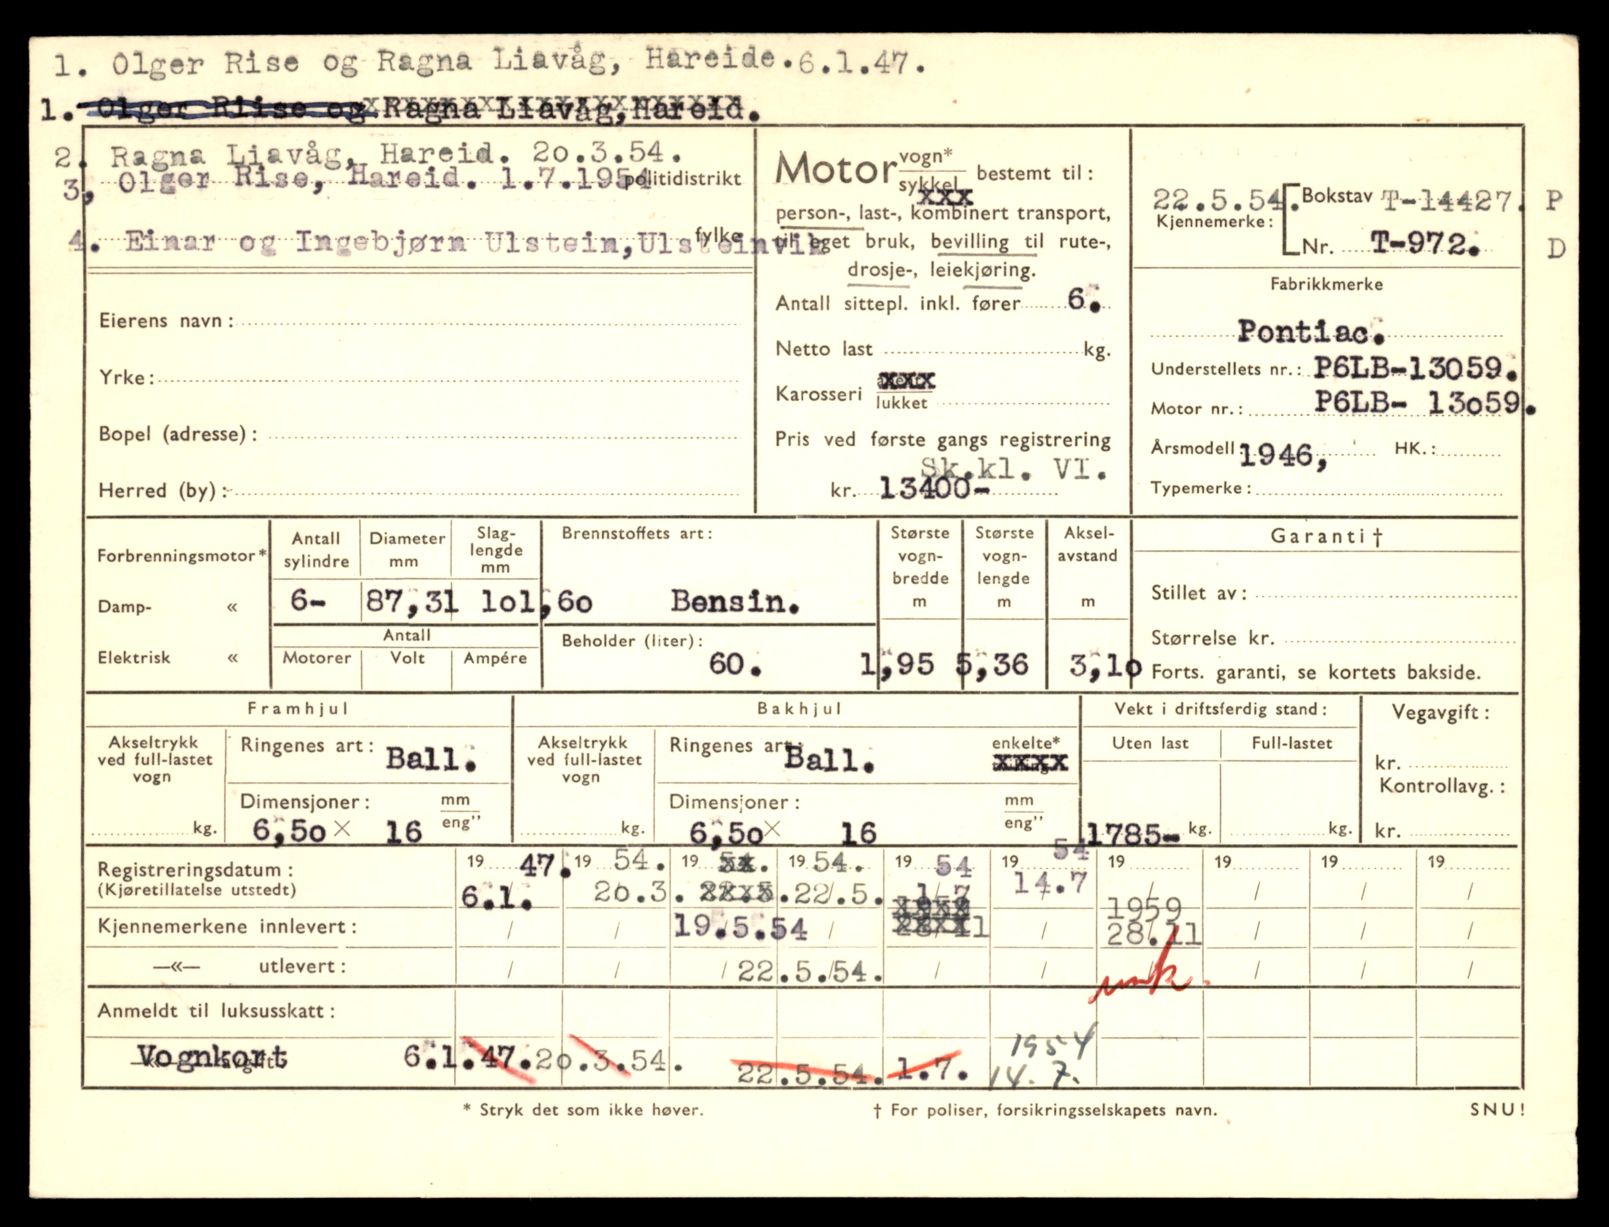 1. Olger Rise og Ragna Liavåg, Hareide.6.1.47.
1. Olger Riise og Ragna Liavåg,Hareid.
2. Ragna Liavåg, Hareid. 2o.3.54.
3, Olger Rise, Hareid. 1.7.1954 politidistrikt
4. Einar og Ingebjørn Ulstein,Ulsteinvik fylke
Eierens navn:
Yrke:
Bopel (adresse):
Herred (by):
Motor vogn* sykkel bestemt til:
person-, last-, kombinert transport,
til eget bruk, bevilling til rute-,
drosje-, leiekjøring.
Antall sittepl. inkl. fører 6.
Netto last kg.
Karosseri lukket
Pris ved første gangs registrering
Sk.kl. VI.
kr. 13400-
22.5.54. Bokstav T-14427. P
Kjennemerke: Nr. T-972. D
Fabrikkmerke
Pontiac.
Understellets nr.: P6LB-13059.
Motor nr.: P6LB- 13o59.
Årsmodell 1946, HK.:
Typemerke:
Forbrenningsmotor*
Damp- «
Elektrisk «
Antall sylindre
6-
Diameter mm
87,31
Slag-lengde mm
1o1,6o
Antall
Motorer Volt Ampére
Brennstoffets art:
Bensin.
Beholder (liter):
60.
Største vogn-bredde m
1,95
Største vogn-lengde m
5,36
Aksel-avstand m
3,1o
Garanti †
Stillet av:
Størrelse kr.
Forts. garanti, se kortets bakside.
Framhjul
Akseltrykk ved full-lastet vogn
kg.
Ringenes art: Ball.
Dimensjoner: mm eng"
6,5o × 16
Bakhjul
Akseltrykk ved full-lastet vogn
kg.
Ringenes art: Ball. enkelte*
Dimensjoner: mm eng"
6,5o × 16
Vekt i driftsferdig stand:
Uten last Full-lastet
1785- kg. kg.
Vegavgift:
kr.
Kontrollavg.:
kr.
Registreringsdatum: 19 47. 19 54. 19 54. 19 54. 19 54 19 54 19 19 19 19
(Kjøretillatelse utstedt) 6.1. 2o.3. 22.5. 22.5. 1/7 14.7
1959 1959
Kjennemerkene innlevert: 19.5.54 28/11 28.11
—«— utlevert: 22.5.54. mrk.
Anmeldt til luksusskatt:
Vognkort 6.1.47. 2o.3.54. 22.5.54. 1.7. 1954 14.7.
* Stryk det som ikke høver.
† For poliser, forsikringsselskapets navn.
SNU!